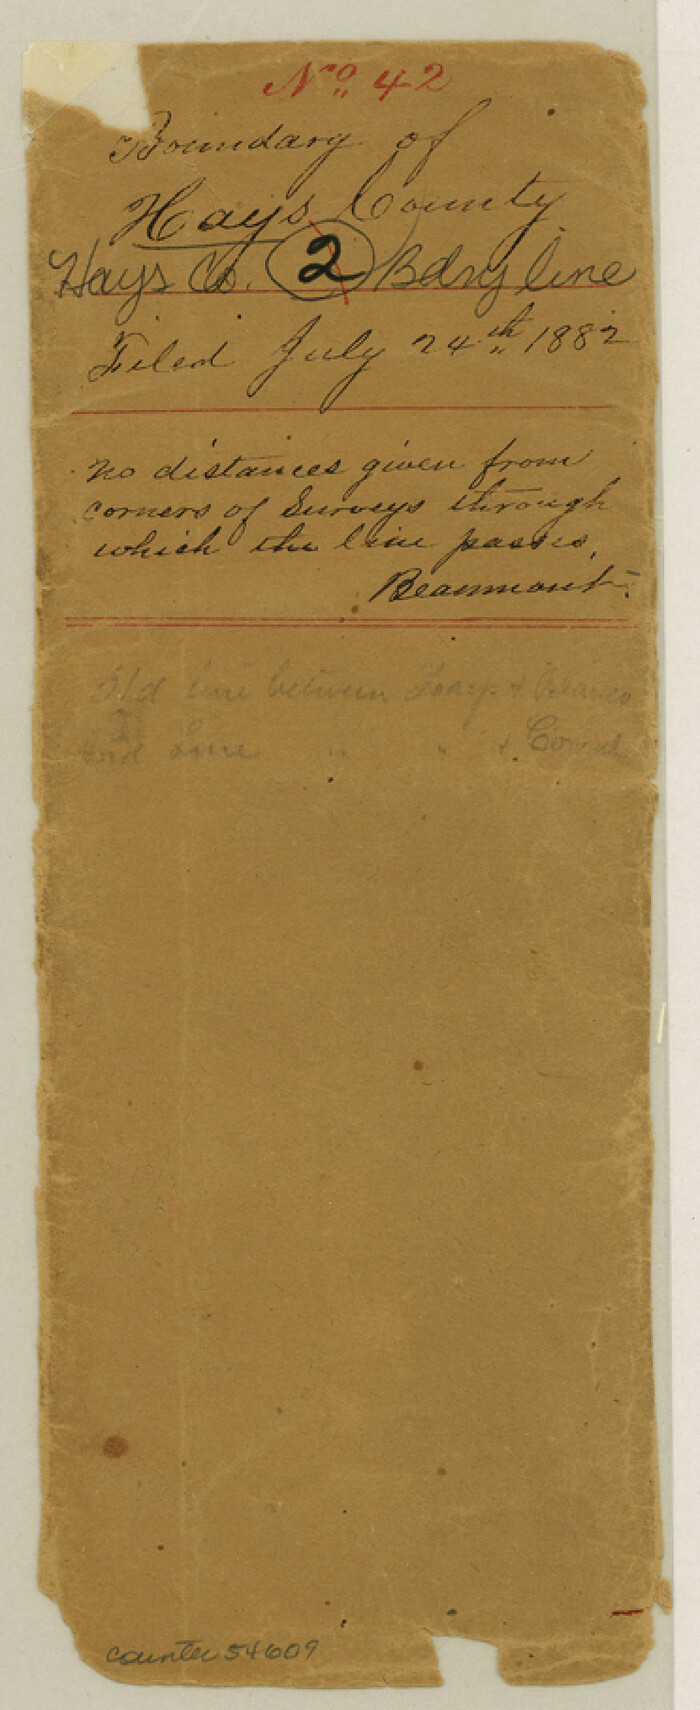 No. 42
Boundary of
Hays County
Hays Co. 2 Bdry line
Filed July 24th 1882
no distances given from
corners of Surveys through
which the line passes,
Beaumont.
Old line between Hays & Blanco
Line " " & Comal
counter 54609